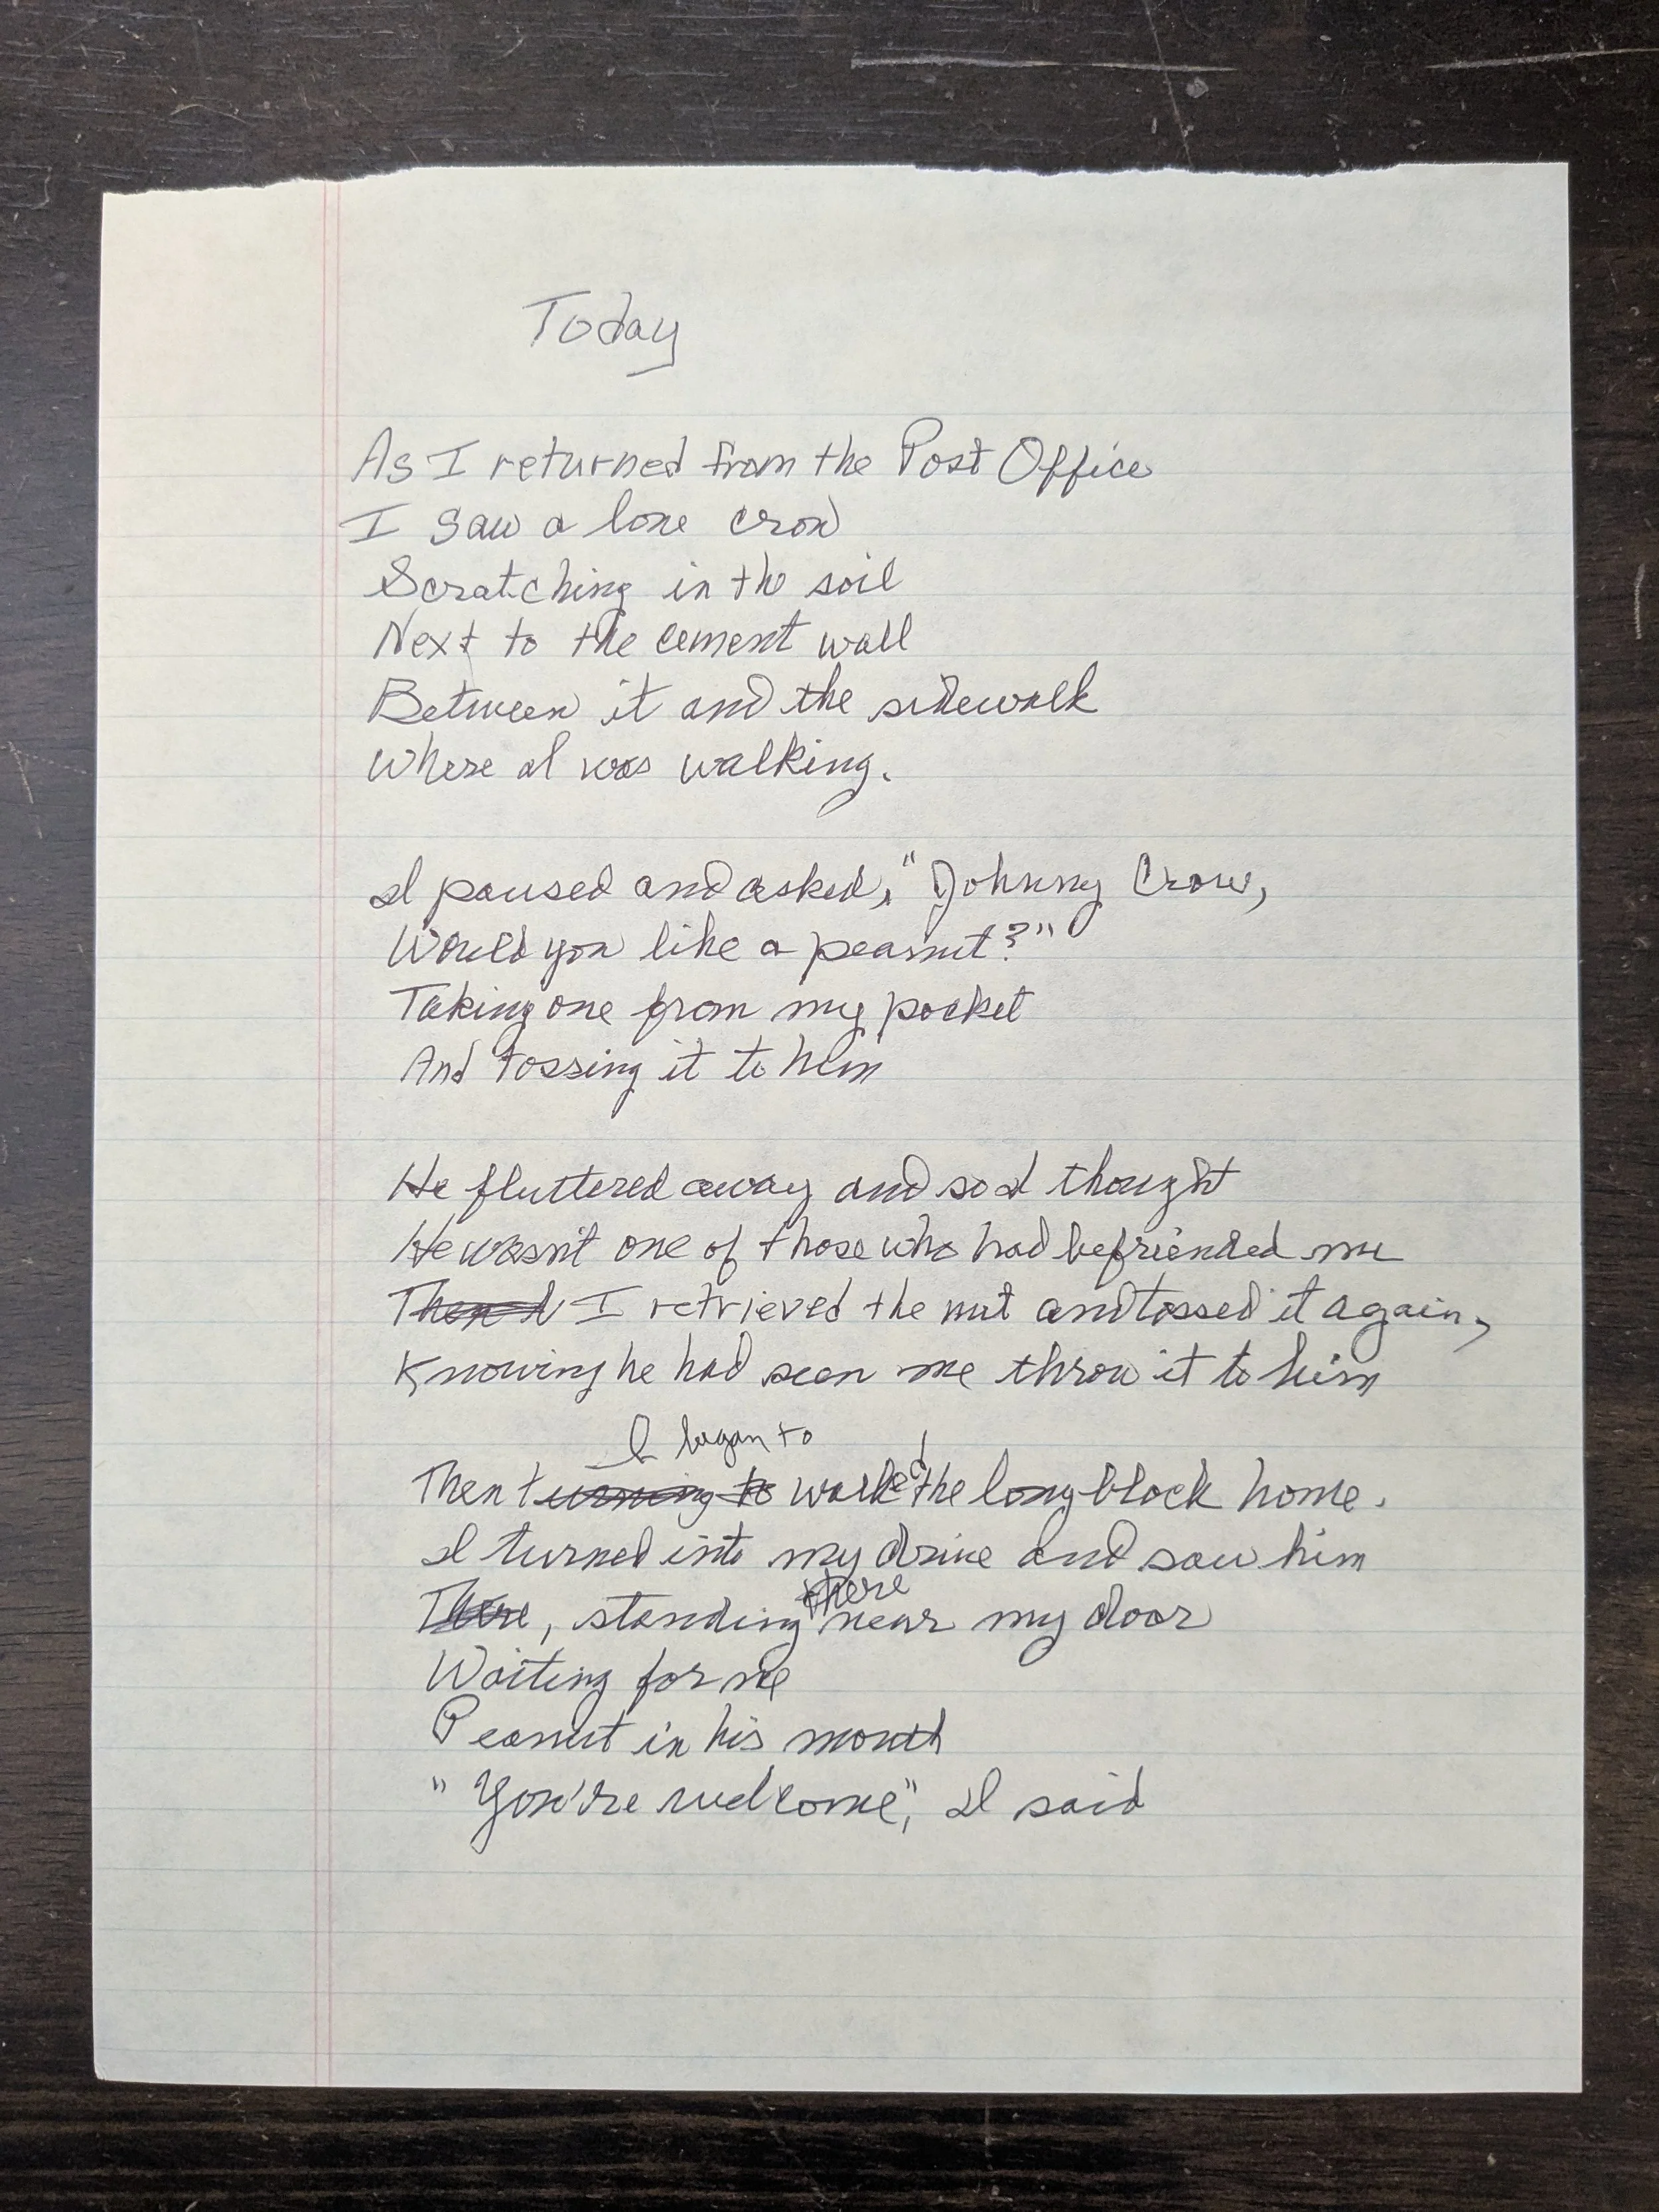 Today
As I returned from the Post Office
I saw a lone crow
Scratching in the soil
Next to the cement wall
Between it and the sidewalk
Where I was walking.
I paused and asked, "Johnny Crow,
Would you like a peanut?"
Taking one from my pocket
And tossing it to him
He fluttered away and so I thought
He wasn't one of those who had befriended me
I retrieved the nut and tossed it again,
Knowing he had seen me throw it to him
I began to
Then turning to walked the long block home.
I turned into my drive and saw him
there
There, standing near my door
Waiting for me
Peanut in his mouth
"You're welcome", I said